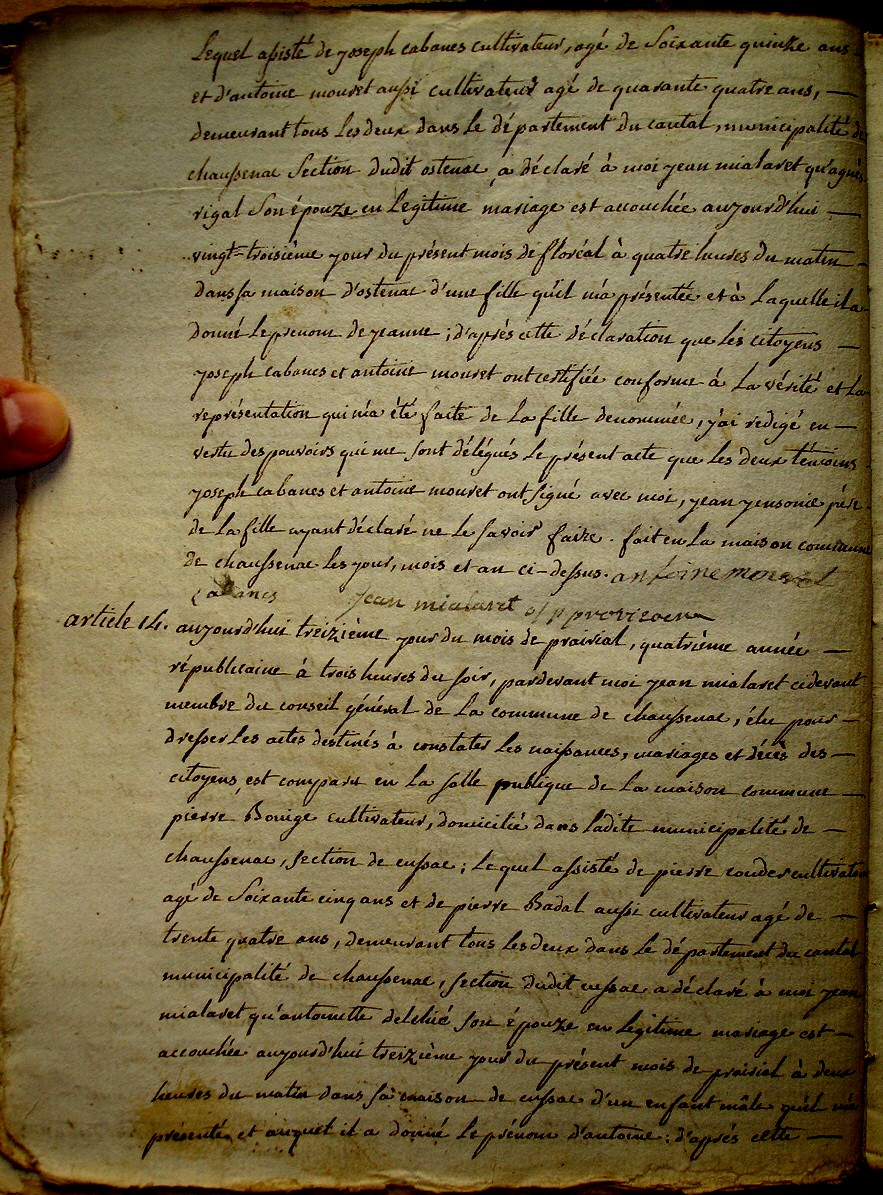 Lequel assisté de joseph cabanes cultivateur, agé de soixante quinze ans
et d'antoine mouret aussi cultivateur agé de quarante quatre ans, —
demeurant tous les deux dans le département du cantal, municipalité de
chaussenac section dudit ostenac, a déclaré à moi jean mialaret qu'agnès
rigal son épouze en legitime mariage est accouchée aujourd'hui —
vingt-troisième jour du présent mois de floréal à quatre heures du matin —
dans sa maison d'ostenac d'une fille qu'il m'a présentée et à laquelle il a
donné le prenom de jeanne ; d'après cette déclaration que les citoyens —
joseph cabanes et antoine mouret ont certifiée conforme à la vérité et la
représentation qui m'a été faite de la fille denommée, j'ai redigé en —
vertu des pouvoirs qui me sont délégués le présent acte que les deux témoins
joseph cabanes et antoine mouret ont signé avec moi, jean père
de la fille ayant déclaré ne le savoir faire. fait en la maison commune
de chaussenac les jour, mois et an ci-dessus. antoine mouret
Cabanes jean mialaret
article 14. aujourd'hui treizième jour du mois de prairial, quatrième année —
républicaine à trois heures du soir, pardevant moi jean mialaret cidevant
membre du conseil général de la commune de chaussenac, élu pour —
dresser les actes destinés à constater les naissances, mariages et décès des —
citoyens, est comparu en la salle publique de la maison commune —
pierre Bouige cultivateur, domicilié dans ladite municipalité de —
chaussenac, section de cussac ; lequel assisté de pierre couder cultivateur
agé de soixante cinq ans et de pierre Badal aussi cultivateur agé de —
trente quatre ans, demeurant tous les deux dans le département du cantal
municipalité de chaussenac, section dudit cussac a déclaré à moi jean
mialaret qu'antoinette son épouze en legitime mariage est —
accouchée aujourd'hui treizième jour du présent mois de prairial à deux
heures du matin dans sa maison de cussac d'un enfant mâle qu'il m'a
présenté, et auquel il a donné le prénom d'antoine : d'après cette —